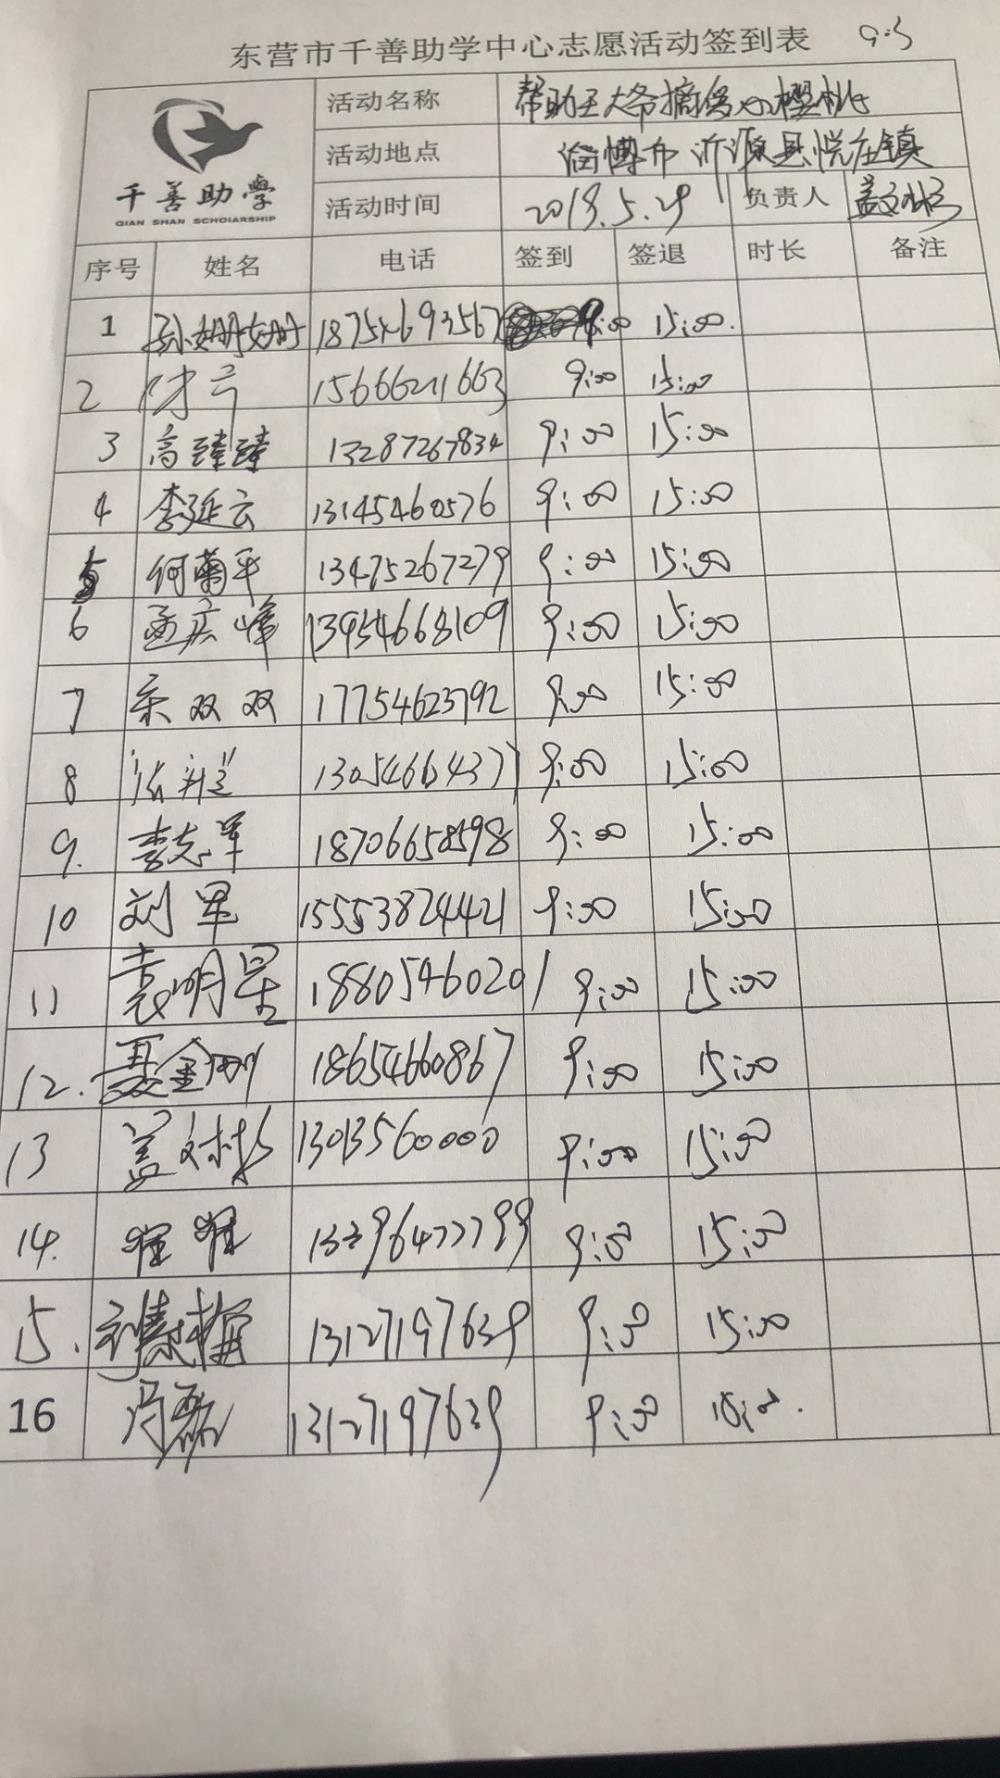 东营市千善助学中心志愿活动签到表 9:5
千善助学
QIAN SHAN SCHOIARSHIP
活动名称 帮助王大爷摘 小樱桃
活动地点 淄博市沂源县悦庄镇
活动时间 2019.5.29 负责人 盖文彬
序号 姓名 电话 签到 签退 时长 备注
1 孙姗姗 18754693567 9:00 15:00.
2 15666211663 9:00 15:00
3 高臻臻 13287267834 9:00 15:00
4 李延云 13145460576 9:00 15:00
5 何菊平 13475267279 9:00 15:00
6 孟庆峰 13954668109 9:00 15:00
7 宋双双 17754623792 9:00 15:00
8 13054664377 9:00 15:00
9. 李志军 18706658598 9:00 15:00
10 刘军 15553824421 9:00 15:00
11 袁明星 18805460201 9:00 15:00
12. 聂金刚 18654660867 9:00 15:00
13 盖文彬 13013560000 9:00 15:00
14. 13396477799 9:00 15:00
15. 刘素梅 13127197639 9:00 15:00
16 冯磊 13127197639 9:00 15:00.